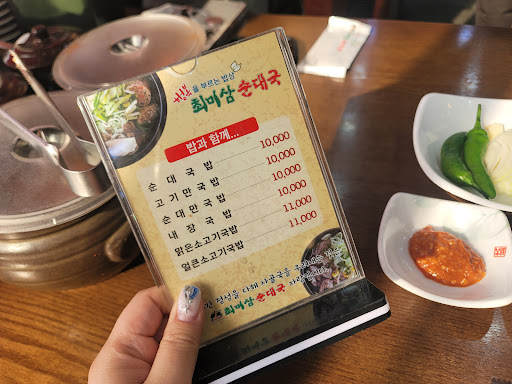 을 부르는 밥심
최미삼 순대국
밥과 함께...
순대국밥 10,000
고기만국밥 10,000
순대만국밥 10,000
내장국밥 10,000
맑은소고기국밥 11,000
얼큰소고기국밥 11,000
정성을 다해 사골국을
최미삼 순대국